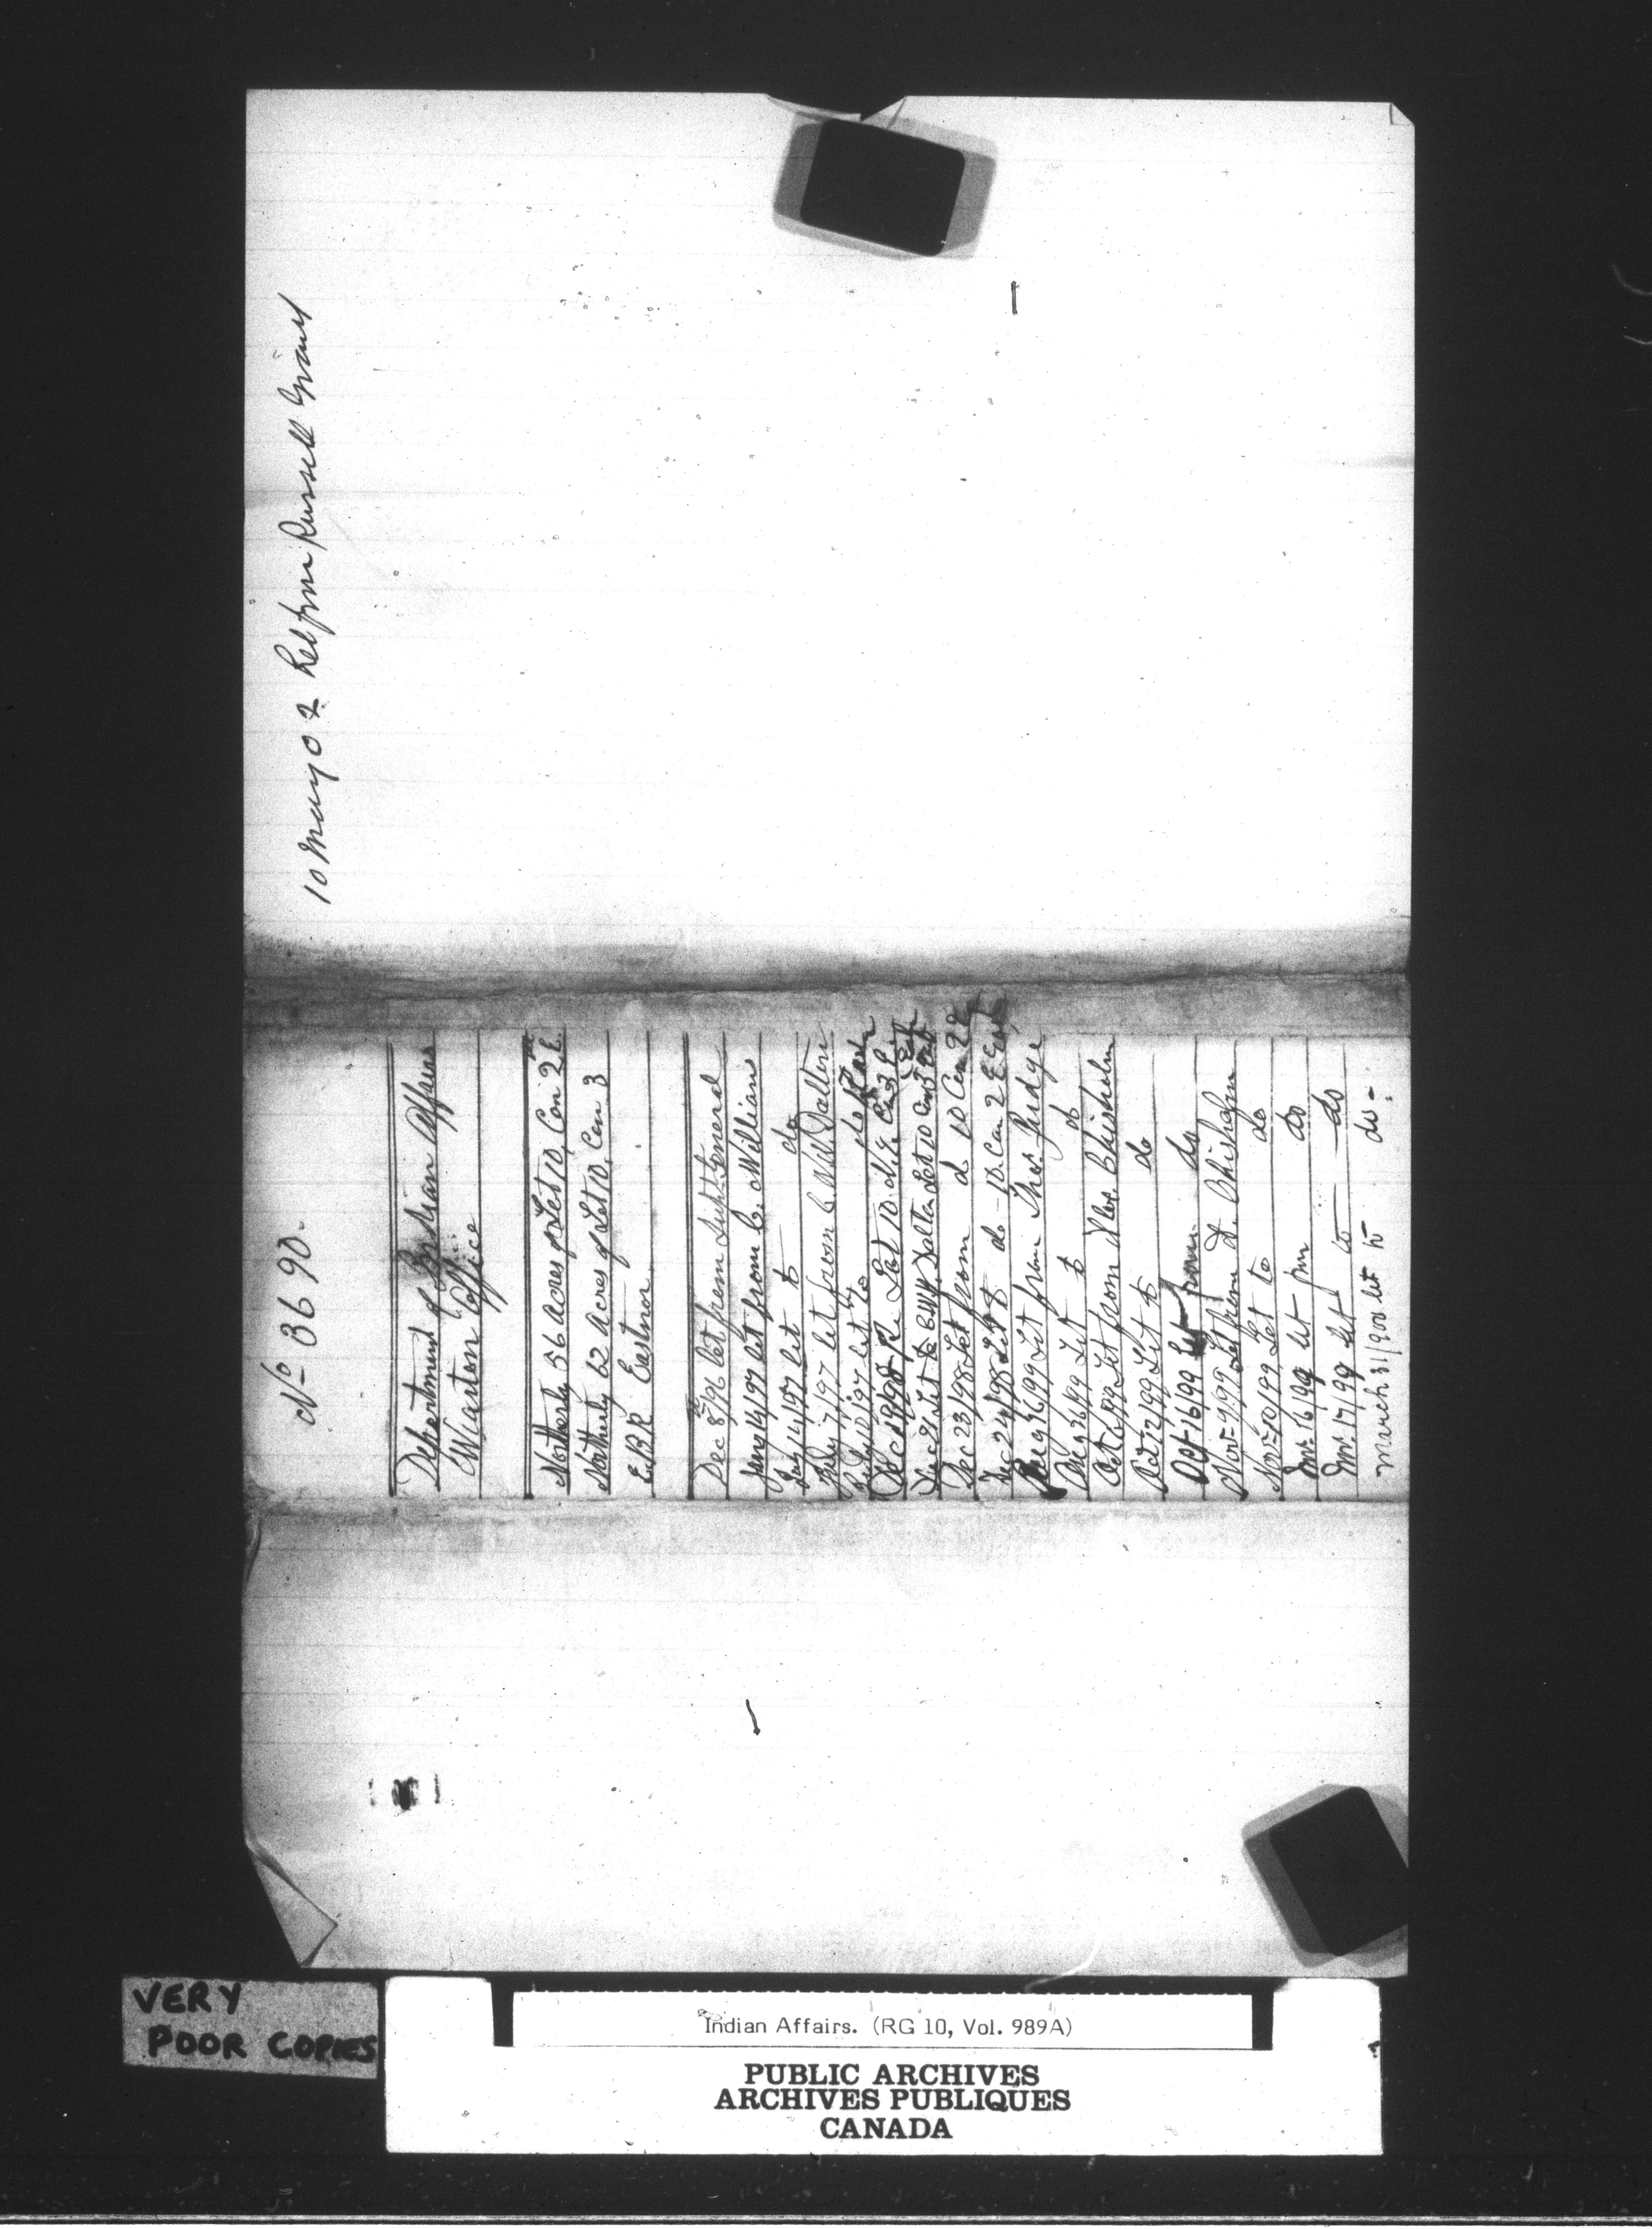 No 3690.
Department of Indian Affairs
Wiarton Office
Northerly 56 Acres of Lot 10, Con 2 E.
Northerly 62 Acres of Lot 10, Con 3
E.B.R. Eastnor
Dec 8th/96 let from Supt General
Jany 14/97 let from C. William
Jany 14/97 let to do
July 7/97 let from C W Dalton
July 10/97 let to do
Dec /98 Re Lot 10 Con 3
Dec 21 Let to C.W. Dalton Lot 10 Con 3
Dec 23/98 Let from do 10 Con 2
Dec 24/98 Let to do - 10 Con 2 E
Aug 26/99 Let from Thos. Judge
Aug 26/99 Let to do
Oct /99 Let from Alex. Chisholm
Oct 12/99 Let to do
Oct 16/99 Let from do
Nov 9/99 Let from A. Chisholm
Nov 10/99 Let to do
Nov 16/99 let from do
Nov 17/99 let to do
March 31/900 let to do -
10 May 02 Let from Russell Grant
VERY
POOR COPIES
Indian Affairs. (RG 10, Vol. 989A)
PUBLIC ARCHIVES
ARCHIVES PUBLIQUES
CANADA